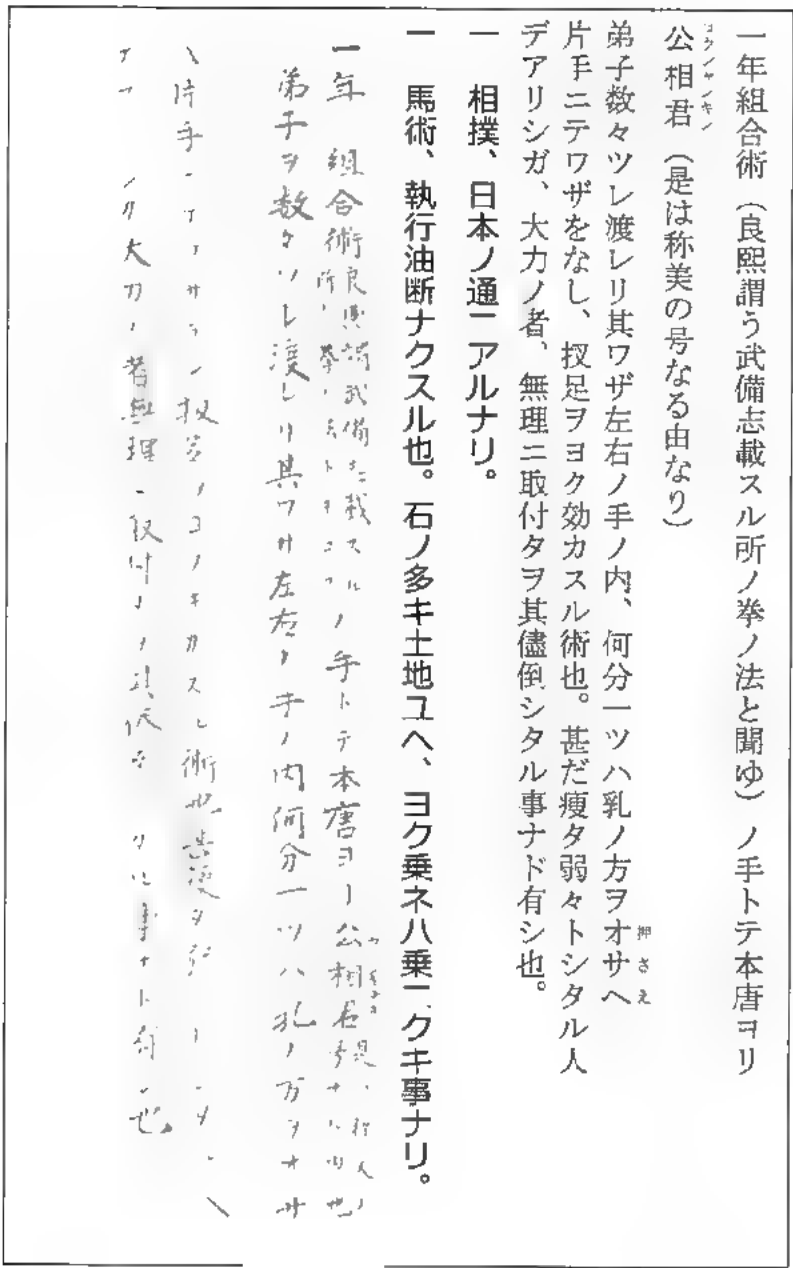 一年組合術（良熙謂う武備志載スル所ノ拳ノ法と聞ゆ）ノ手トテ本唐ヨリ
コウシャンキン
公相君（是は称美の号なる由なり）
弟子数々ツレ渡レリ其ワザ左右ノ手ノ内、何分一ツハ乳ノ方ヲオサヘ
押さえ
片手ニテワザをなし、扠足ヲヨク効カスル術也。甚だ瘦タ弱々トシタル人
デアリシガ、大力ノ者、無理ニ取付タヲ其儘倒シタル事ナド有シ也。
一　相撲、日本ノ通ニアルナリ。
一　馬術、執行油断ナクスル也。石ノ多キ土地ユヘ、ヨク乗ネハ乗ニクキ事ナリ。
一年　組合術良熙謂武備志載スル
所ノ拳ノ法トキコユノ手トテ本唐ヨリ公相君
弟子ヲ数々ツレ渡レリ其ワザ左右ノ手ノ内何分一ツハ乳ノ方ヲオサ
片手
術也甚瘦タ弱
大力ノ者無理ニ取付タヲ其侭
タル事ナト有シ也